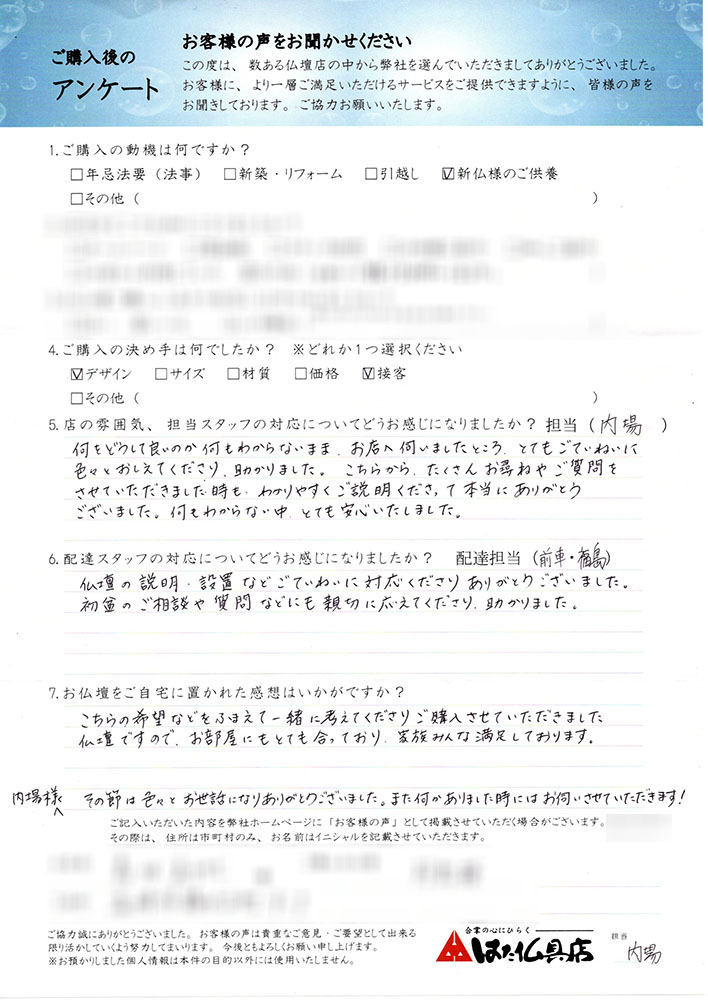 ご購入後の
アンケート
お客様の声をお聞かせください
この度は、数ある仏壇店の中から弊社を選んでいただきましてありがとうございました。
お客様に、より一層ご満足いただけるサービスをご提供できますように、皆様の声を
お聞きしております。ご協力お願いいたします。
1.ご購入の動機は何ですか?
□年忌法要(法事) □新築・リフォーム □引越し ☑新仏様のご供養
□その他( )
4.ご購入の決め手は何でしたか? ※どれか1つ選択ください
☑デザイン □サイズ □材質 □価格 ☑接客
□その他( )
5.店の雰囲気、担当スタッフの対応についてどうお感じになりましたか?担当(内場 )
何をどうして良いのか何もわからないまま、お店へ伺いましたところ、とてもごていねいに
色々とおしえてくださり、助かりました。こちらから、たくさんお尋ねやご質問を
させていただきました時も、わかりやすくご説明くださって本当にありがとう
ございました。何もわからない中、とても安心いたしました。
6.配達スタッフの対応についてどうお感じになりましたか? 配達担当(前車・福島)
仏壇の説明・設置などごていねいに対応くださりありがとうございました。
初盆のご相談や質問などにも親切に応えてくださり、助かりました。
7.お仏壇をご自宅に置かれた感想はいかがですか?
こちらの希望などをふまえて一緒に考えてくださりご購入させていただきました
仏壇ですので、お部屋にもとても合っており、家族みんな満足しております。
内場様へ その節は色々とお世話になりありがとうございました。また何かありました時にはお伺いさせていただきます!
ご記入いただいた内容を弊社ホームページに「お客様の声」として掲載させていただく場合がございます。
その際は、住所は市町村のみ、お名前はイニシャルを記載させていただきます。
ご協力誠にありがとうございました。お客様の声は貴重なご意見・ご要望として出来る
限り活かしていくよう努力してまいります。今後ともよろしくお願い申し上げます。
※お預かりしました個人情報は本件の目的以外には使用いたしません。
合掌の心にひらく
はた仏具店
担当
内場